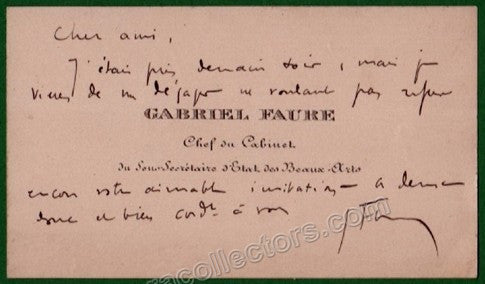 Cher ami,
J'étais pris demain soir, mais je
viens de me dégager ne voulant pas refuser
GABRIEL FAURE
Chef du Cabinet
du Sous-Secrétaire d'Etat des Beaux-Arts
encore votre aimable invitation - à demain
donc et bien cordt à vous
Faure
racollectors.com